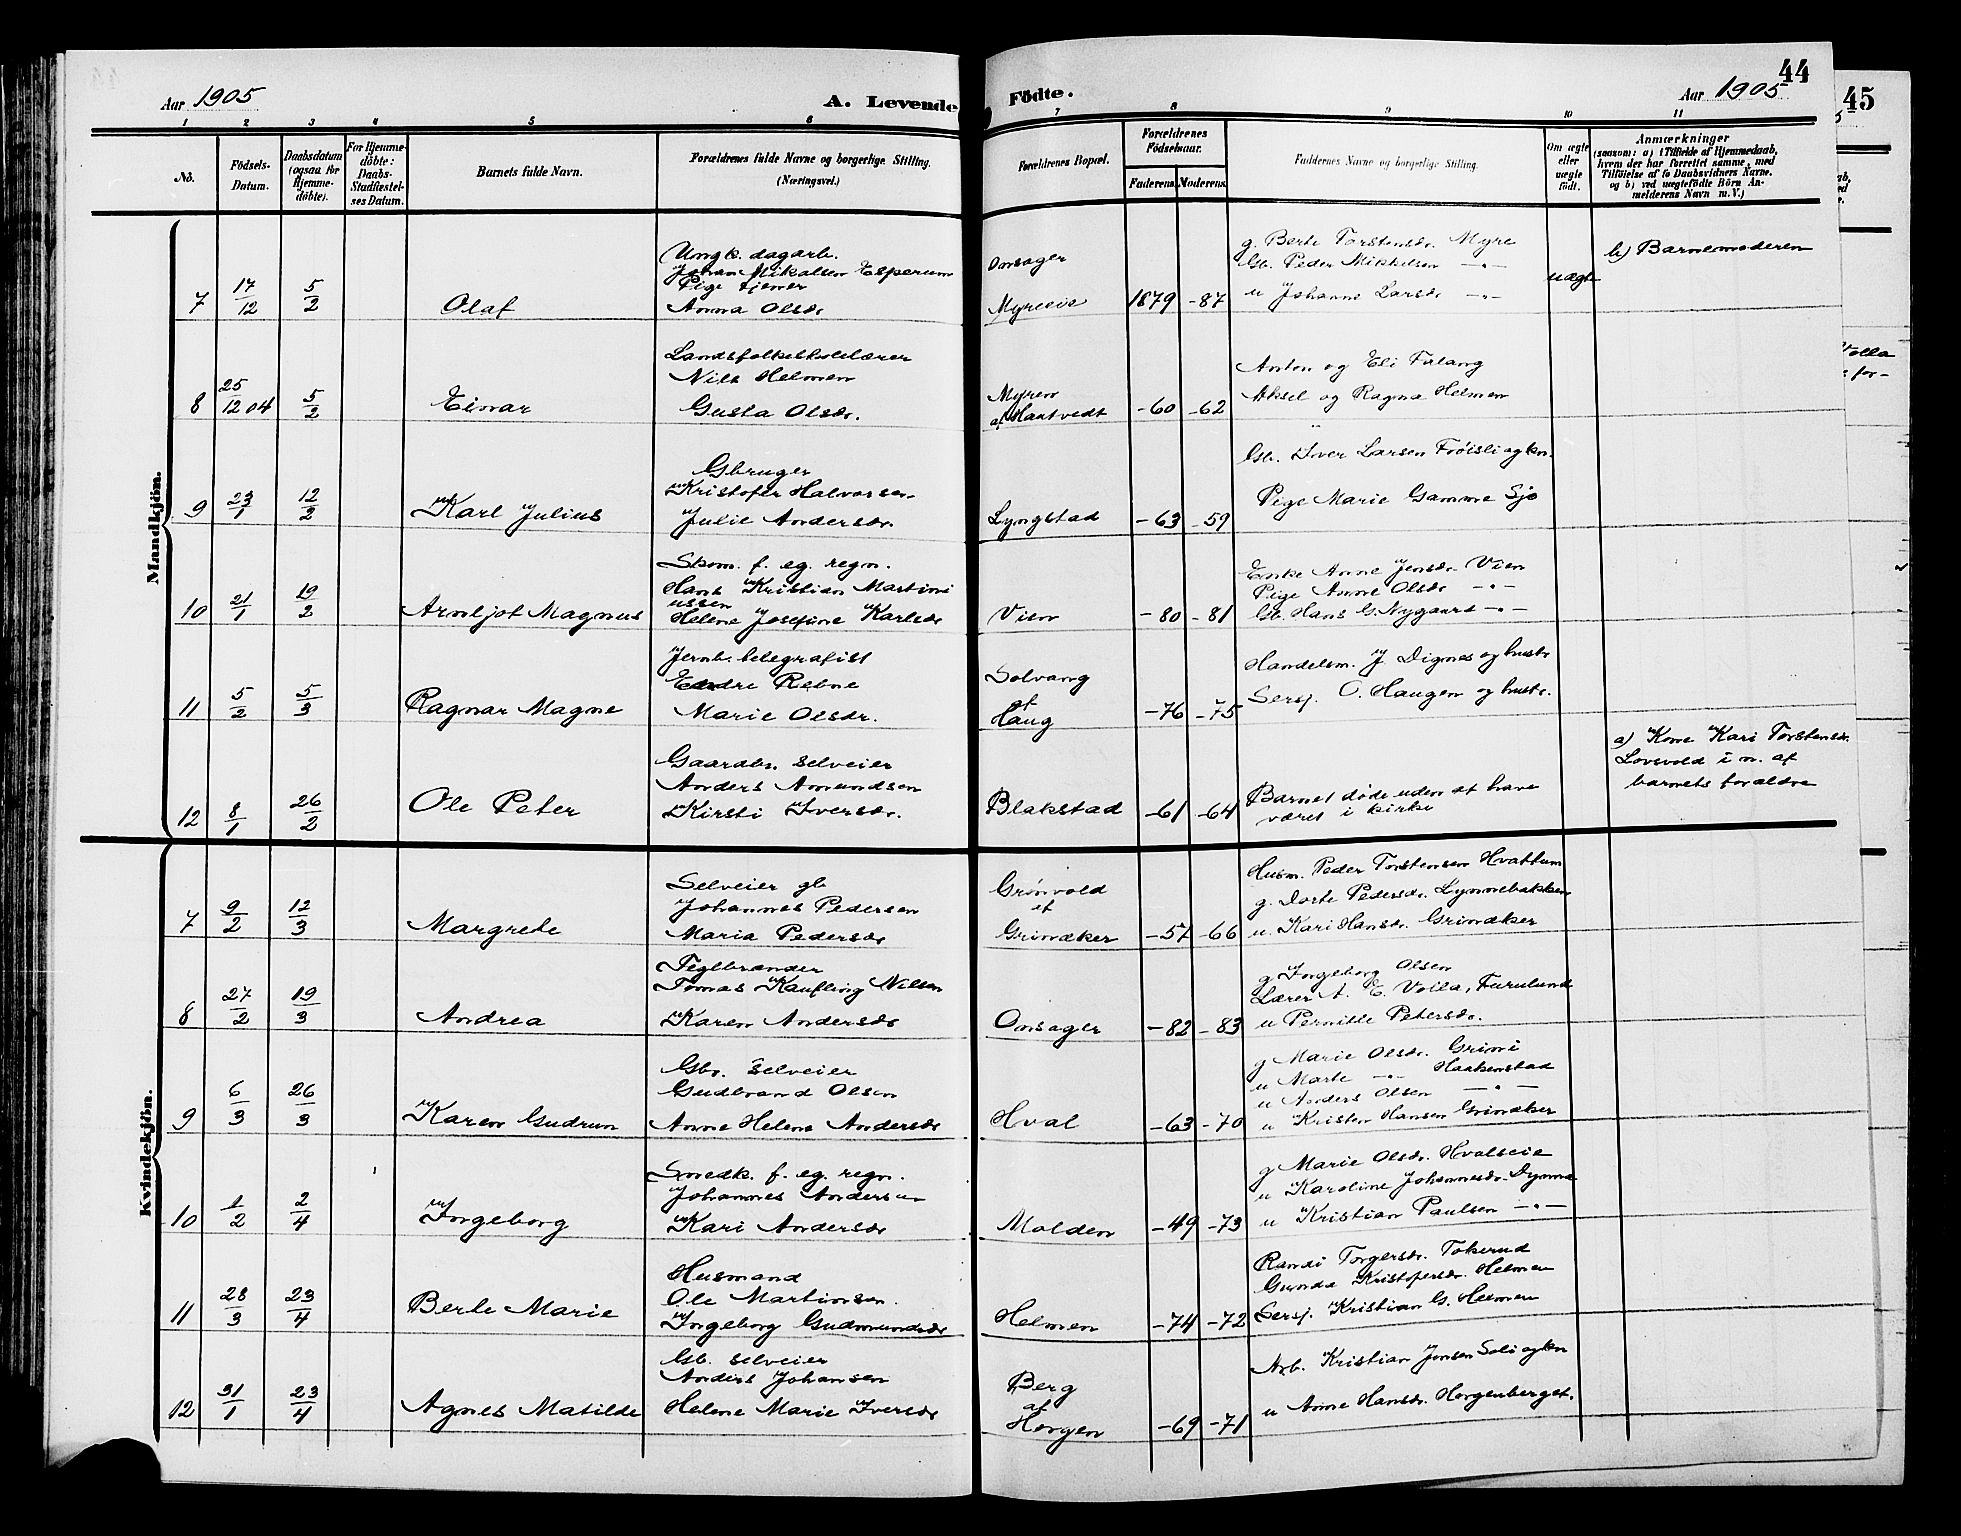 44
45
Aar 1905
A. Levende Födte.
Aar 1905
1 2 3 4 5 6 7 8 9 10 11
No.
Födsels-
Datum.
Daabsdatum
(ogsaa for
Hjemme-
döbte).
For Hjemme-
döbte:
Daabs-
Stadfæstel-
ses Datum.
Barnets fulde Navn.
Forældrenes fulde Navne og borgerlige Stilling.
(Næringsvei.)
Forældrenes Bopæl.
Forældrenes
Födselsaar.
Faderens. Moderens.
Faddernes Navne og borgerlige Stilling.
Om ægte
eller
uægte
födt.
Anmærkninger
(saasom: a) i Tilfælde af Hjemmedaab,
hvem der har forrettet samme, med
Tilföielse af to Daabsvidners Navne.
og b) ved uægtefödte Börn An-
melderens Navn m. V.)
Mandkjön.
7 17/12 5/2 Olaf
Ungk. dagarb.
Johan Mikalsen Esperum
Pige tjener
Anna Olsdr
Onsager
Myreeie 1879 -87
g. Berte Torstensdr. Myre
Gb. Peder Mikkelsen -"-
u Johanne Larsdr -"-
uægte
b) Barnemoderen
8 25/12 04 5/2 Einar
Landsfolkeskolelærer
Nils Helmen
Gusta Olsdr.
Myren
af Hantvedt -60 -62
Anton og Eli Falang
Aksel og Ragna Helmen
9 23/1 12/2 Karl Julius
Gbruger
Kristofer Halvorsen
Julie Andersdr.
Lyngstad -63 -59
Gb. Iver Larsen Fröisli og kn.
Pige Marie Gamme Sjo
10 21/1 19/2 Arnljot Magnus
Skom. f. eg. regn.
Hans Kristian Martini
ussen
Helene Josefine Karlsdr
Vien -80 -81
Enke Anne Jensdr. Vien
Pige Anne Olsdr -"-
Gb. Hans G. Nygaard -"-
11 5/2 5/3 Ragnar Magne
Jernb. telegrafist
Endre Rebne
Marie Olsdr.
Solvang
af
Haug -76 -75
Handelsm. J. Dignes og hustr
Sersj. O. Haugen og hustr.
12 8/1 26/2 Ole Peter
Gaardbr. selveier
Anders Amundsen
Kirsti Iversdr.
Blakstad -61 -64
Barnet döde uden at have
været i kirke
a) Kone Kari Torstensdr.
Lovsvold i n. af
barnets forældre
Kvindekjön.
7 9/2 12/3 Margrete
Selveier gb
Johannes Pedersen
Maria Pedersdr
Grönvold
af
Grinaker -57 -66
Husm. Peder Torstensen Hvattum
g. Dorte Pedersdr. Lynnebakken
u. Kari Hansdr. Grinaker
8 27/2 19/3 Andrea
Teglbrænder
Tomas Kaufling Nilsen
Karen Andersdr
Onsager -82 -83
g Ingeborg Olsen
Lærer A. E. Volla, Furulund
u Pernille Petersdr.
9 6/3 26/3 Karen Gudrun
Gbr. selveier
Gudbrand Olsen
Anne Helene Andersdr
Hval -63 -70
g Marie Olsdr. Grini
u Marte -"- Haakenstad
u Anders Olsen -"-
u Kristen Hansen Grinaker
10 1/2 2/4 Ingeborg
Smedk. f. eg. regn.
Johannes Andersen
Kari Andersdr
Molden -49 -73
g Marie Olsdr. Hvalseie
u Karoline Johannesdr. Dynna
u Kristian Paulsen -"-
11 28/3 23/4 Berte Marie
Husmand
Ole Martinsen.
Ingeborg Gudmundsdr
Helmen -74 -72
Randi Torgersdr. Tokerud
Gunda Kristofersdr. Helmen
Sersj. Kristian G. Helmen
12 31/1 23/4 Agnes Matilde
Gb. selveier
Anders Johansen
Helene Marie Iversdr
Berg
af
Horgen -69 -71
Arb. Kristian Jensen Soli og kn
u Anne Hansdr. Horgenberget.